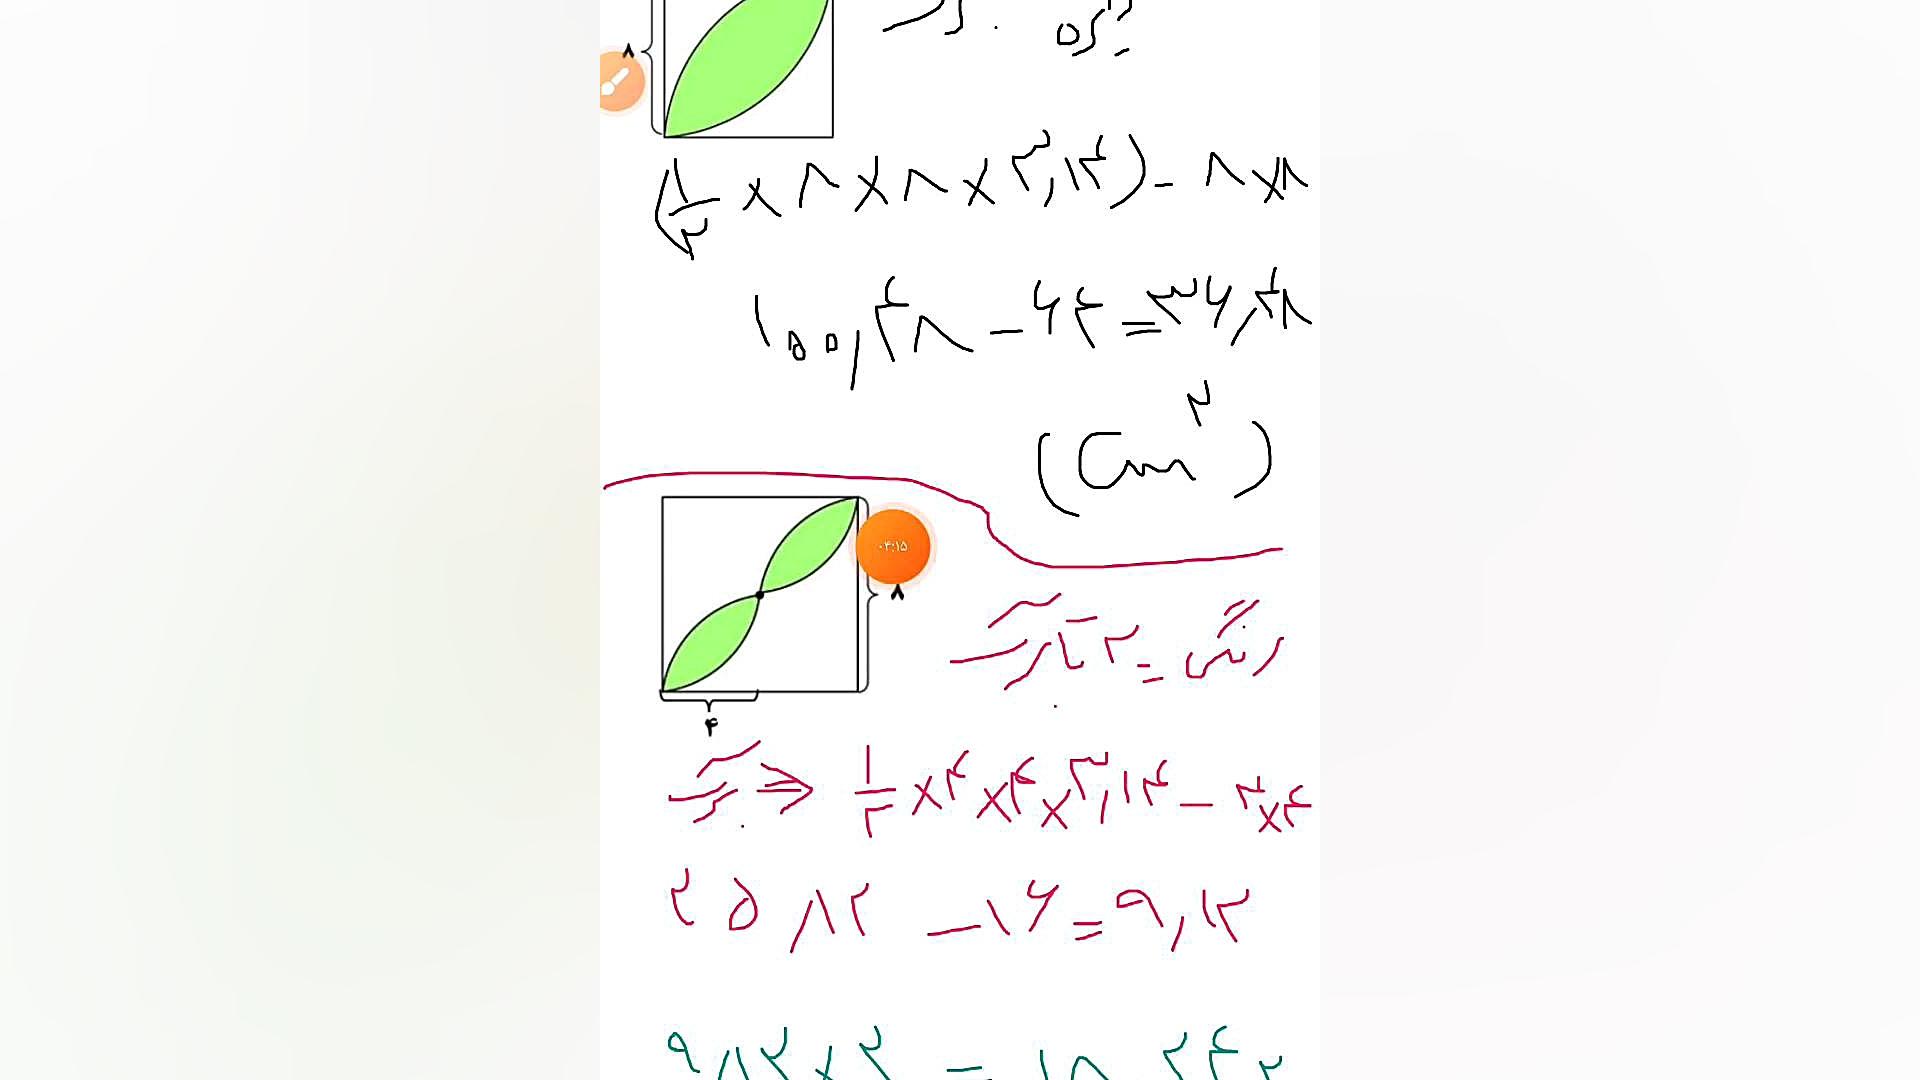 ۸
(۱/۲ × ۸ × ۸ × ۳,۱۴) - ۸ × ۸
۱۰۰,۴۸ - ۶۴ = ۳۶,۴۸
(Cm²)
۰۴:۱۵
۸
رنگی = ۲ تا
۴
⇒ ۱/۲ × ۴ × ۴ × ۳,۱۴ - ۴ × ۴
۲۵,۱۲ - ۱۶ = ۹,۱۲
۹,۱۲ × ۲ = ۱۸,۲۴